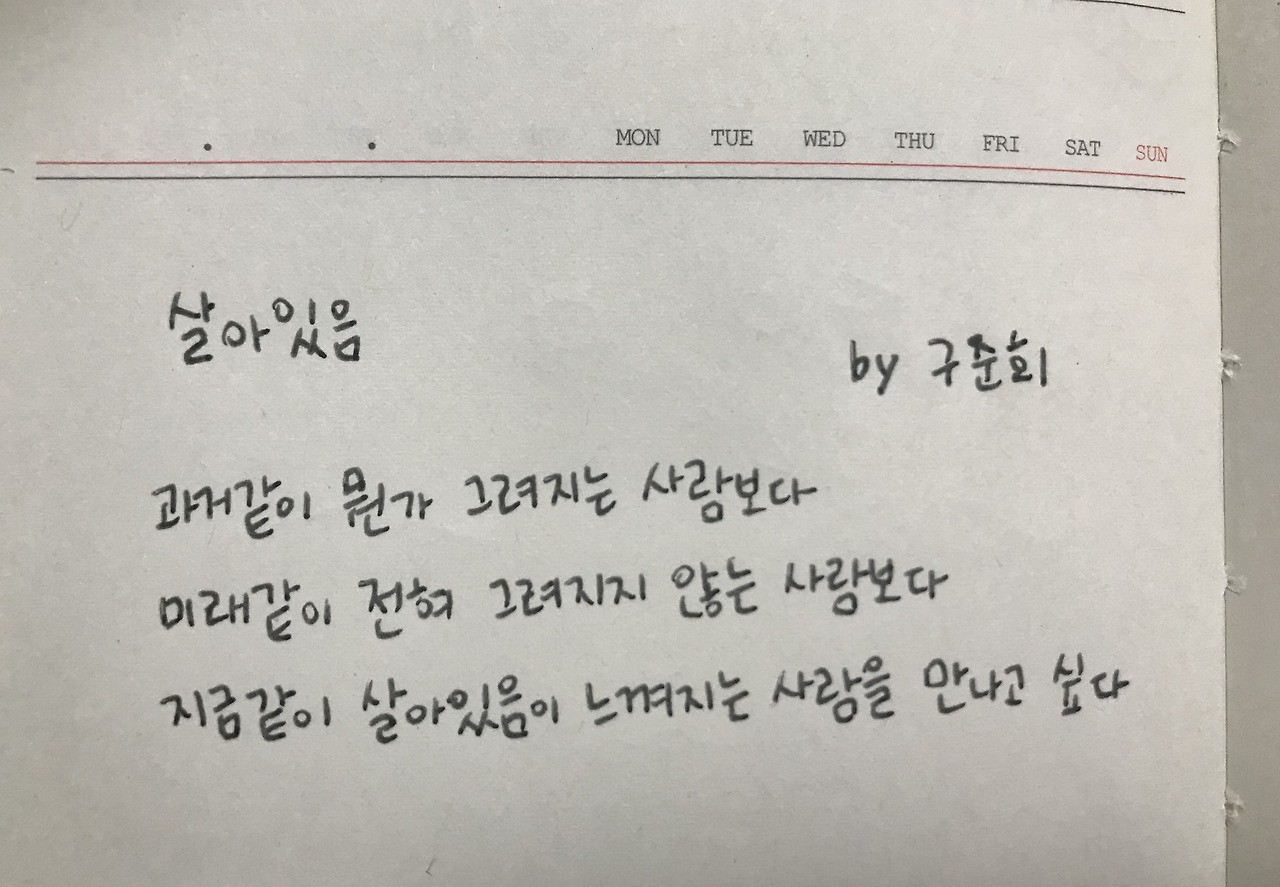 MON TUE WED THU FRI SAT SUN
살아있음
by 구준회
과거같이 뭔가 그려지는 사람보다
미래같이 전혀 그려지지 않는 사람보다
지금같이 살아있음이 느껴지는 사람을 만나고 싶다